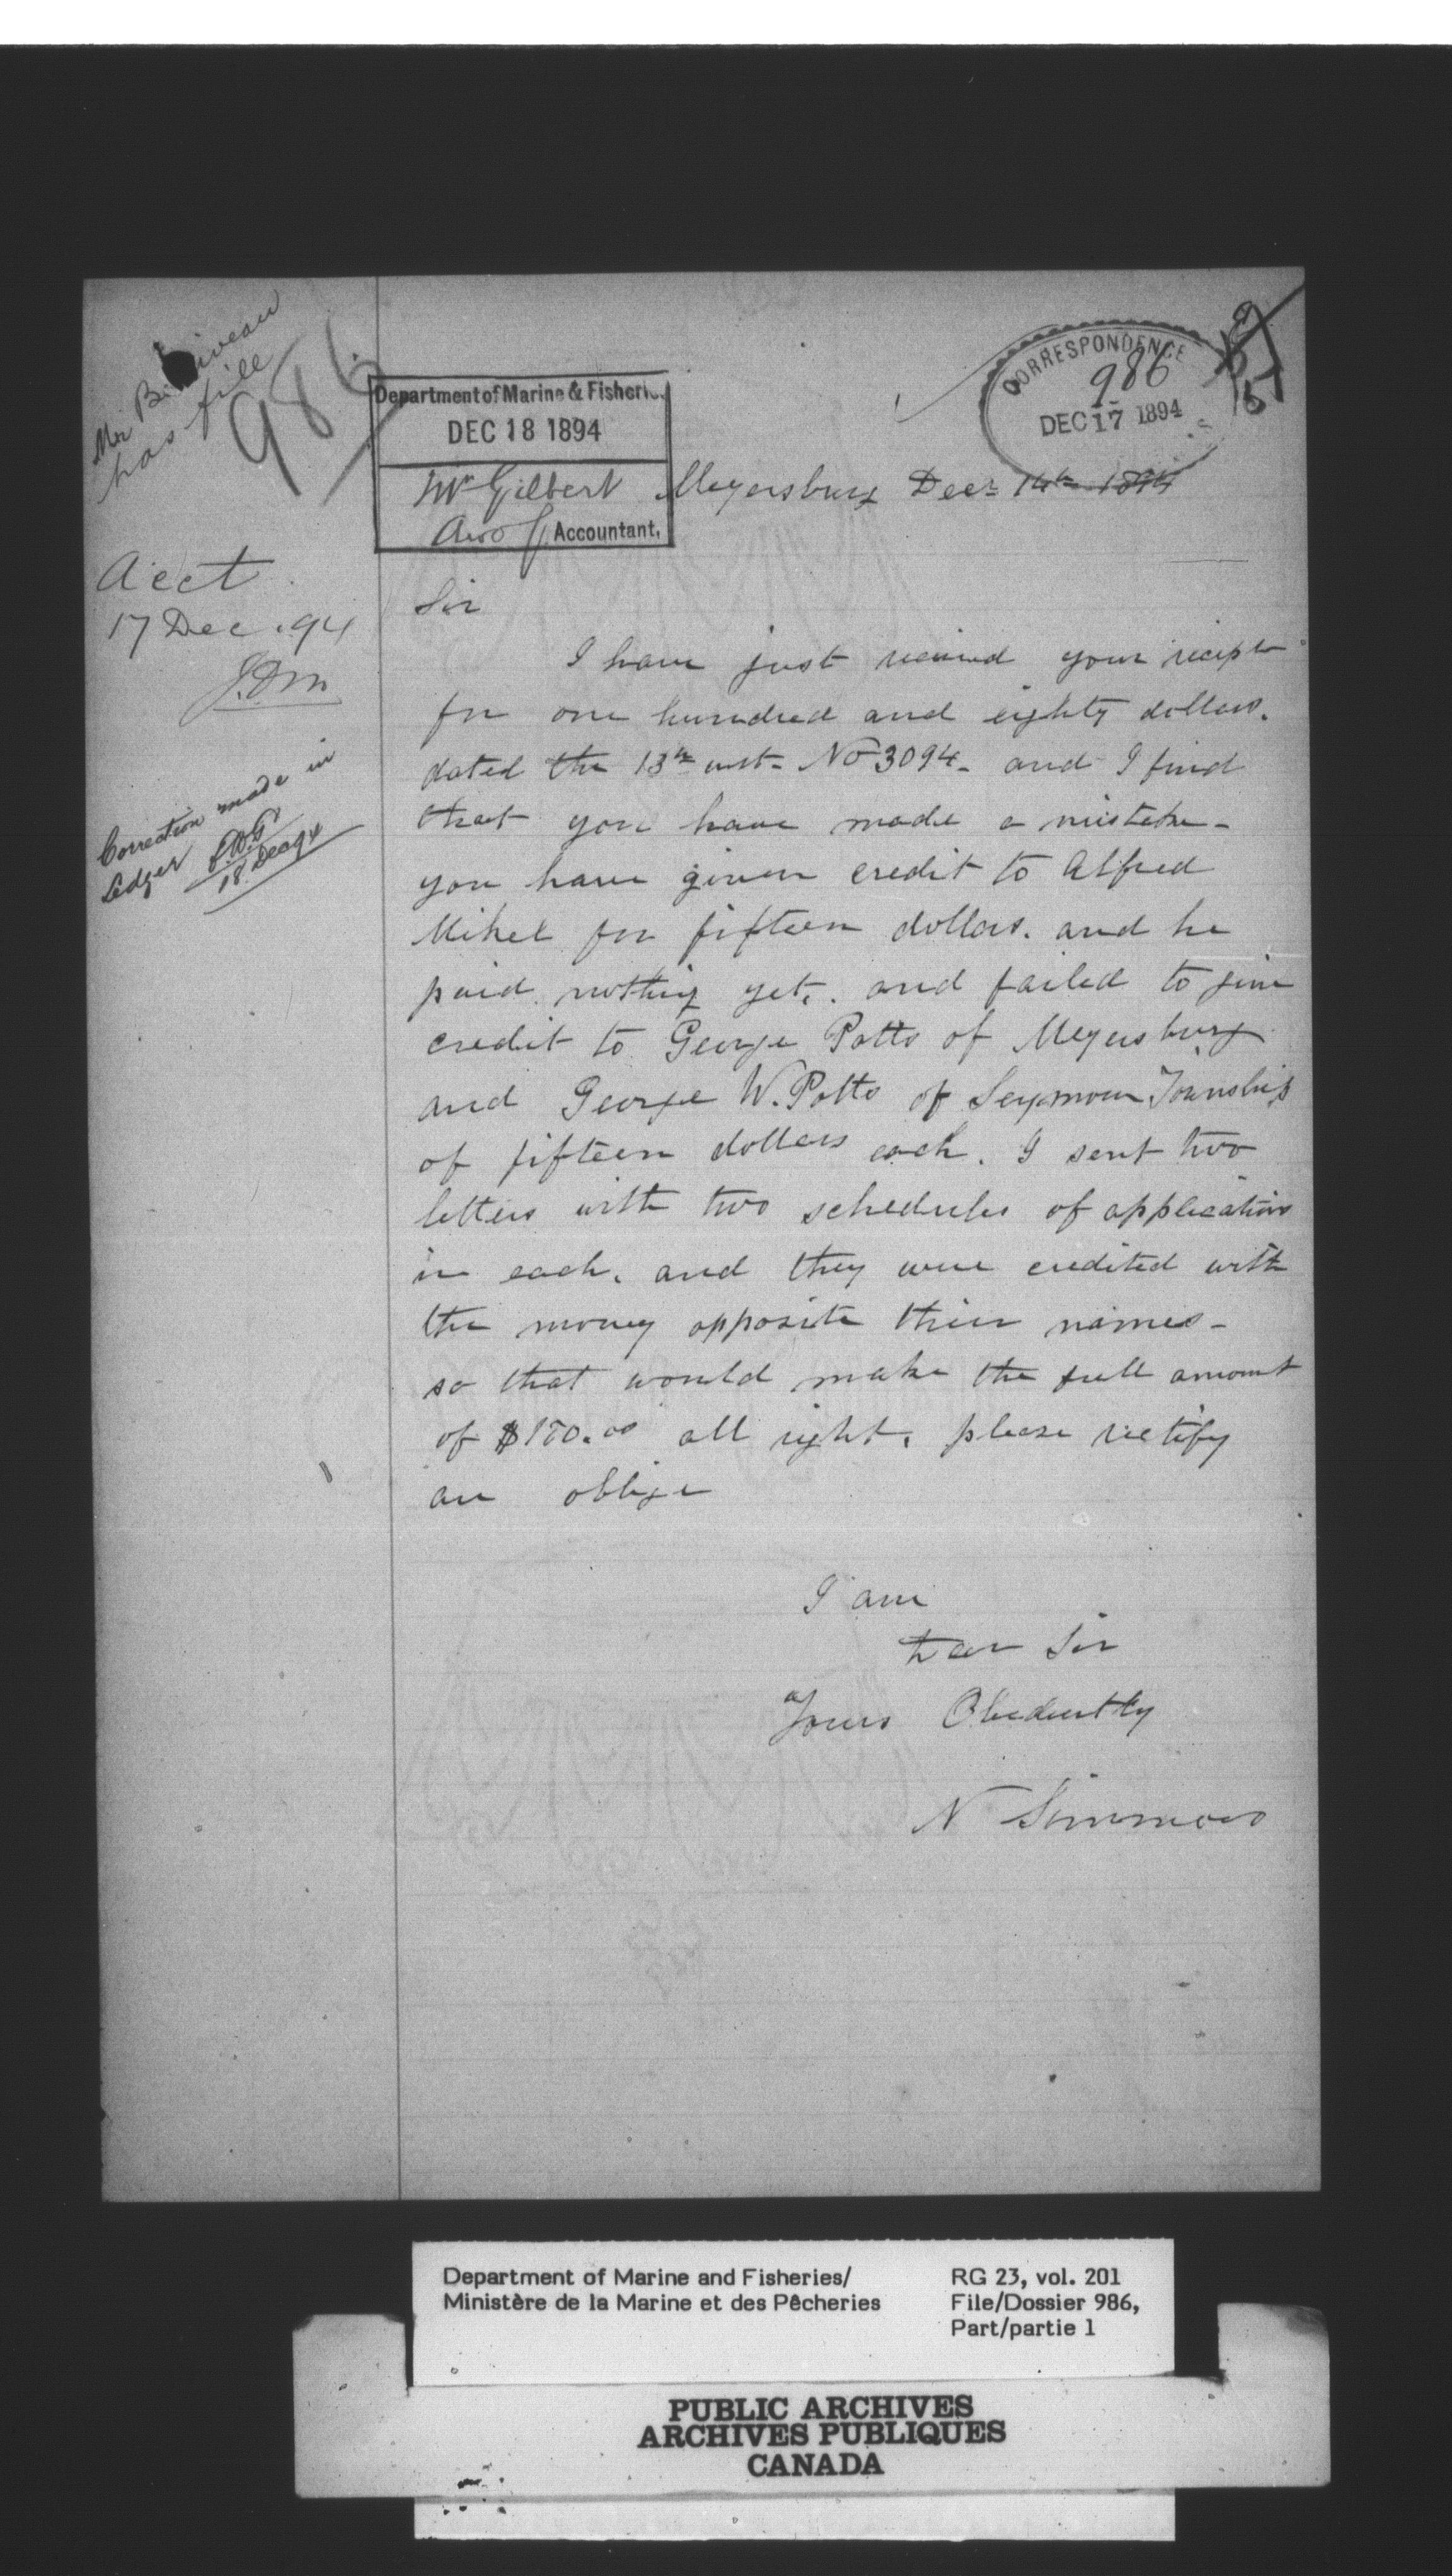 Mr Beliveau
has file
986
Department of Marine & Fisheries
DEC 18 1894
Mr Gilbert
Accountant.
CORRESPONDENCE
986
DEC 17 1894
Meyersburg Decr 14th 1894
Acct
17 Dec. 94
J.D.M
Correction made in
Ledger
18. Dec 94
Sir
I have just received your recipt
for one hundred and eighty dollars.
dated the 13th inst- No 3094- and I find
that you have made a mistake-
you have given credit to Alfred
Mikel for fifteen dollars. and he
paid nothing yet, and failed to give
credit to George Potts of Meyersburg
and George W. Potts of Seymour Township
of fifteen dollars each. I sent two
letters with two schedules of applications
in each. and they were credited with
the money opposite their names-
so that would make the full amount
of $180.00 all right. please rectify
an oblige
I am
Dear Sir
Yours Obediently
N Simmons
Department of Marine and Fisheries/
Ministère de la Marine et des Pêcheries
RG 23, vol. 201
File/Dossier 986,
Part/partie 1
PUBLIC ARCHIVES
ARCHIVES PUBLIQUES
CANADA